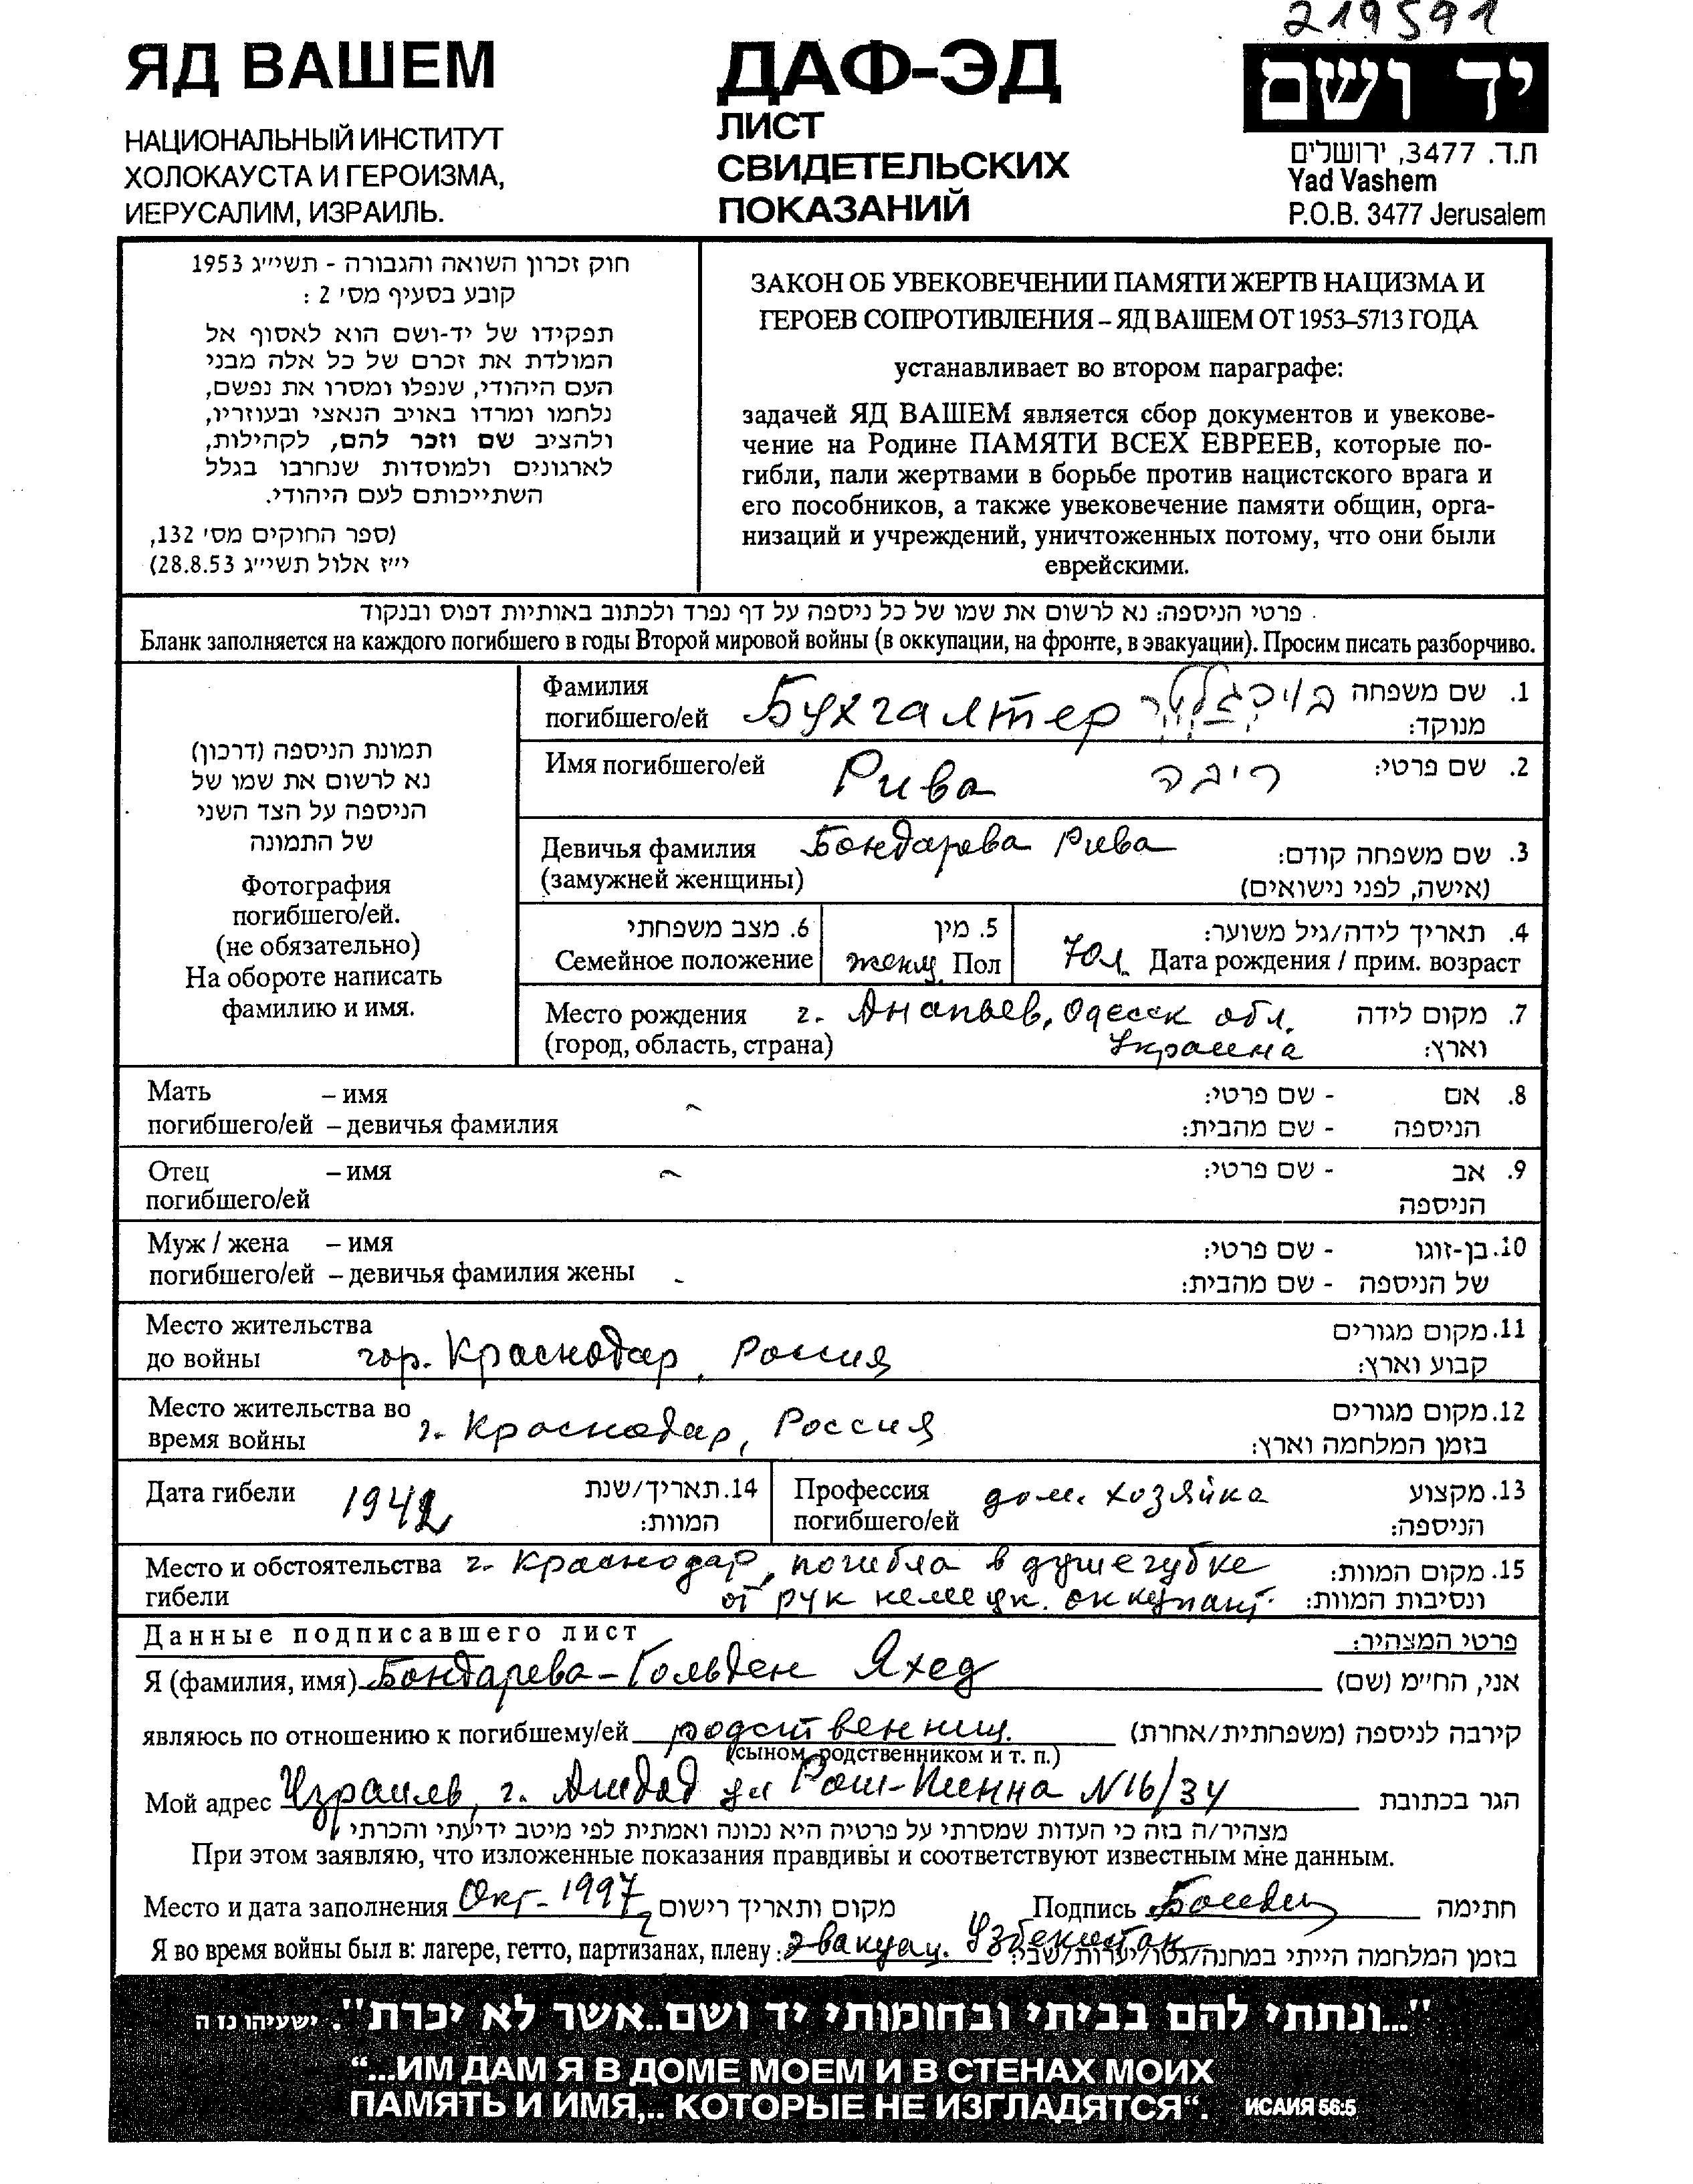 219591
ЯД ВАШЕМ
НАЦИОНАЛЬНЫЙ ИНСТИТУТ
ХОЛОКАУСТА И ГЕРОИЗМА,
ИЕРУСАЛИМ, ИЗРАИЛЬ.
ДАФ-ЭД
ЛИСТ
СВИДЕТЕЛЬСКИХ
ПОКАЗАНИЙ
יד ושם
ת.ד. 3477, ירושלים
Yad Vashem
P.O.B. 3477 Jerusalem
חוק זכרון השואה והגבורה - תשי״ג 1953
קובע בסעיף מס׳ 2 :
תפקידו של יד-ושם הוא לאסוף אל
המולדת את זכרם של כל אלה מבני
העם היהודי, שנפלו ומסרו את נפשם,
נלחמו ומרדו באויב הנאצי ובעוזריו,
ולהציב שם וזכר להם, לקהילות,
לארגונים ולמוסדות שנחרבו בגלל
השתייכותם לעם היהודי.
(ספר החוקים מס׳ 132,
י״ז אלול תשי״ג 28.8.53)
ЗАКОН ОБ УВЕКОВЕЧЕНИИ ПАМЯТИ ЖЕРТВ НАЦИЗМА И
ГЕРОЕВ СОПРОТИВЛЕНИЯ – ЯД ВАШЕМ ОТ 1953–5713 ГОДА
устанавливает во втором параграфе:
задачей ЯД ВАШЕМ является сбор документов и увекове-
чение на Родине ПАМЯТИ ВСЕХ ЕВРЕЕВ, которые по-
гибли, пали жертвами в борьбе против нацистского врага и
его пособников, а также увековечение памяти общин, орга-
низаций и учреждений, уничтоженных потому, что они были
еврейскими.
פרטי הניספה: נא לרשום את שמו של כל ניספה על דף נפרד ולכתוב באותיות דפוס ובנקוד.
Бланк заполняется на каждого погибшего в годы Второй мировой войны (в оккупации, на фронте, в эвакуации). Просим писать разборчиво.
תמונת הניספה (דרכון)
נא לרשום את שמו של
הניספה על הצד השני
של התמונה
Фотография
погибшего/ей.
(не обязательно)
На обороте написать
фамилию и имя.
Фамилия 1. שם משפחה
погибшего/ей Бухгалтер מנוקד:
Имя погибшего/ей Рива ריבה 2. שם פרטי:
Девичья фамилия Бондарева Рива 3. שם משפחה קודם:
(замужней женщины) (אישה, לפני נישואים)
6. מצב משפחתי 5. מין 4. תאריך לידה/גיל משוער:
Семейное положение женщ Пол 70 л. Дата рождения / прим. возраст
Место рождения г. Ананьев, Одесск обл. 7. מקום לידה
(город, область, страна) Украина וארץ:
Мать – имя - שם פרטי: 8. אם
погибшего/ей – девичья фамилия - שם מהבית: הניספה
Отец – имя - שם פרטי: 9. אב
погибшего/ей הניספה
Муж / жена – имя - שם פרטי: 10. בן-זוגו
погибшего/ей – девичья фамилия жены - שם מהבית: של הניספה
Место жительства 11. מקום מגורים
до войны гор. Краснодар, Россия קבוע וארץ:
Место жительства во 12. מקום מגורים
время войны г. Краснодар, Россия בזמן המלחמה וארץ:
Дата гибели 1942 14. תאריך/שנת המוות:
Профессия дом. хозяйка 13. מקצוע
погибшего/ей הניספה:
Место и обстоятельства г. Краснодар, погибла в душегубке 15. מקום המוות:
гибели от рук немецк. оккупант. ונסיבות המוות:
Данные подписавшего лист פרטי המצהיר:
Я (фамилия, имя) Бондарева-Гольден Яхед אני, הח״מ (שם)
являюсь по отношению к погибшему/ей родственниц. קירבה לניספה (משפחתית/אחרת)
(сыном, родственником и т. п.)
Мой адрес Израиль, г. Ашдод ул Рош-Пинна N16/34 הגר בכתובת
מצהיר/ה בזה כי העדות שמסרתי על פרטיה היא נכונה ואמתית לפי מיטב ידיעתי והכרתי
При этом заявляю, что изложенные показания правдивы и соответствуют известным мне данным.
Место и дата заполнения Окт- 1997 מקום ותאריך רישום Подпись חתימה
Я во время войны был в: лагере, гетто, партизанах, плену: Эвакуац. Узбекистан בזמן המלחמה הייתי במחנה/גטו/יערות/שבי:
"...ונתתי להם בביתי ובחומותי יד ושם..אשר לא יכרת". ישעיהו נו ה
“...ИМ ДАМ Я В ДОМЕ МОЕМ И В СТЕНАХ МОИХ
ПАМЯТЬ И ИМЯ,.. КОТОРЫЕ НЕ ИЗГЛАДЯТСЯ“. ИСАИЯ 56:5